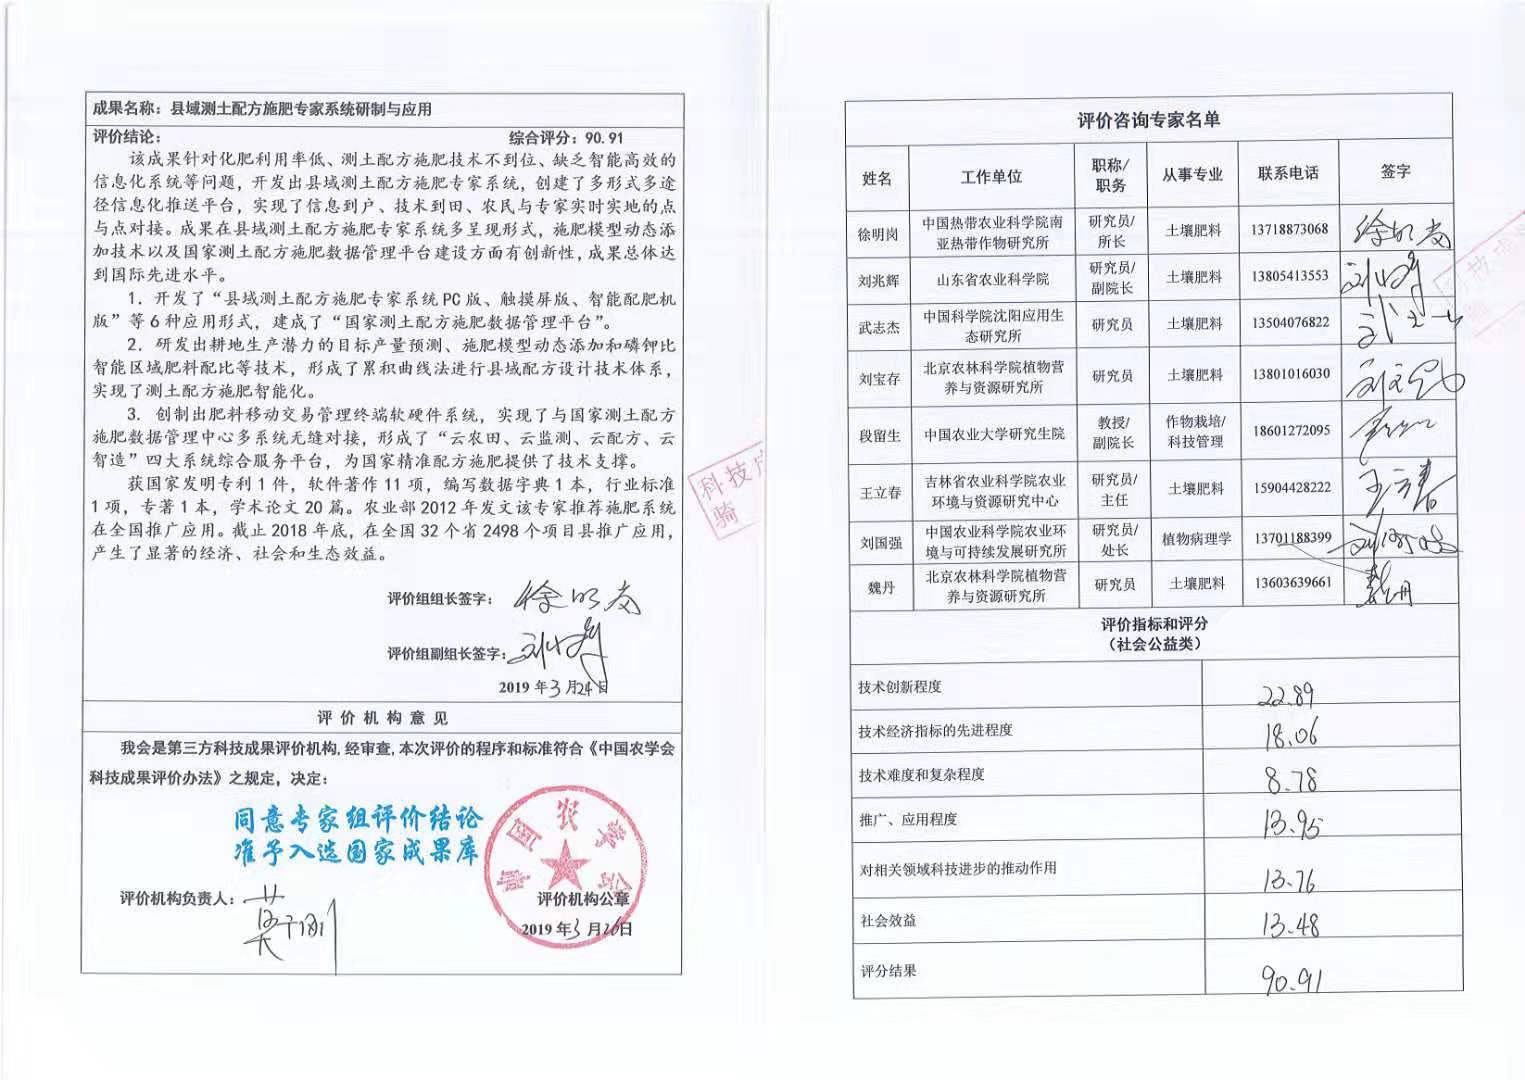 成果名称：县域测土配方施肥专家系统研制与应用
评价结论： 综合评分：90.91
该成果针对化肥利用率低、测土配方施肥技术不到位、缺乏智能高效的
信息化系统等问题，开发出县域测土配方施肥专家系统，创建了多形式多途
径信息化推送平台，实现了信息到户、技术到田、农民与专家实时实地的点
与点对接。成果在县域测土配方施肥专家系统多呈现形式，施肥模型动态添
加技术以及国家测土配方施肥数据管理平台建设方面有创新性，成果总体达
到国际先进水平。
1．开发了“县域测土配方施肥专家系统PC版、触摸屏版、智能配肥机
版”等6种应用形式，建成了“国家测土配方施肥数据管理平台”。
2．研发出耕地生产潜力的目标产量预测、施肥模型动态添加和磷钾比
智能区域肥料配比等技术，形成了累积曲线法进行县域配方设计技术体系，
实现了测土配方施肥智能化。
3．创制出肥料移动交易管理终端软硬件系统，实现了与国家测土配方
施肥数据管理中心多系统无缝对接，形成了“云农田、云监测、云配方、云
智造”四大系统综合服务平台，为国家精准配方施肥提供了技术支撑。
获国家发明专利1件，软件著作11项，编写数据字典1本，行业标准
1项，专著1本，学术论文20篇。农业部2012年发文该专家推荐施肥系统
在全国推广应用。截止2018年底，在全国32个省2498个项目县推广应用，
产生了显著的经济、社会和生态效益。
评价组组长签字： 徐明岗
评价组副组长签字： 刘兆辉
2019年3月24日
评价机构意见
我会是第三方科技成果评价机构,经审查,本次评价的程序和标准符合《中国农学会
科技成果评价办法》之规定，决定：
同意专家组评价结论
准予入选国家成果库
中国农学会
评价机构负责人：
评价机构公章
2019年3月26日
科技成
骑
评价咨询专家名单
姓名 工作单位 职称/职务 从事专业 联系电话 签字
徐明岗 中国热带农业科学院南亚热带作物研究所 研究员/所长 土壤肥料 13718873068 徐明岗
刘兆辉 山东省农业科学院 研究员/副院长 土壤肥料 13805413553 刘兆辉
武志杰 中国科学院沈阳应用生态研究所 研究员 土壤肥料 13504076822
刘宝存 北京农林科学院植物营养与资源研究所 研究员 土壤肥料 13801016030 刘宝存
段留生 中国农业大学研究生院 教授/副院长 作物栽培/科技管理 18601272095
王立春 吉林省农业科学院农业环境与资源研究中心 研究员/主任 土壤肥料 15904428222 王立春
刘国强 中国农业科学院农业环境与可持续发展研究所 研究员/处长 植物病理学 13701188399 刘国强
魏丹 北京农林科学院植物营养与资源研究所 研究员 土壤肥料 13603639661 魏丹
评价指标和评分
（社会公益类）
技术创新程度 22.89
技术经济指标的先进程度 18.06
技术难度和复杂程度 8.78
推广、应用程度 13.95
对相关领域科技进步的推动作用 13.76
社会效益 13.48
评分结果 90.91